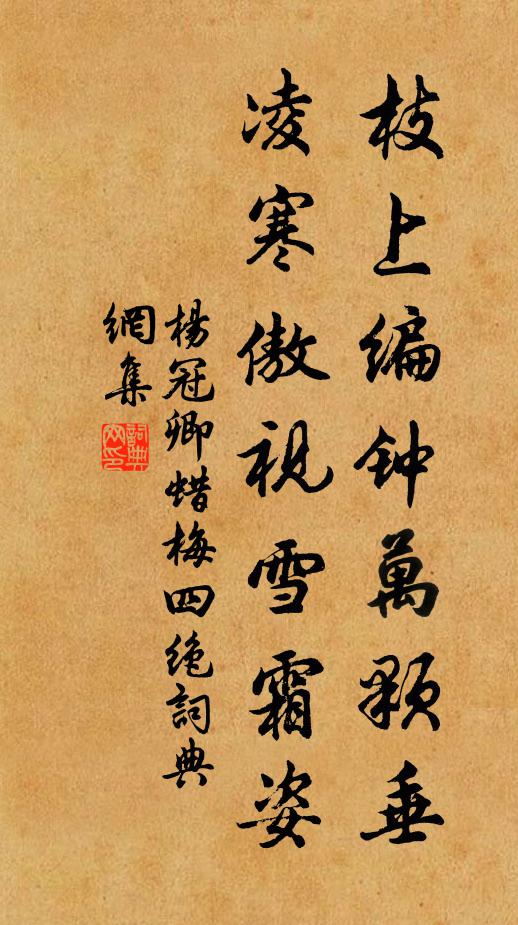 枝上编钟萬顆垂
凌寒傲視雪霜姿
楊冠卿蜡梅四绝詞典
網集
詞典
网印